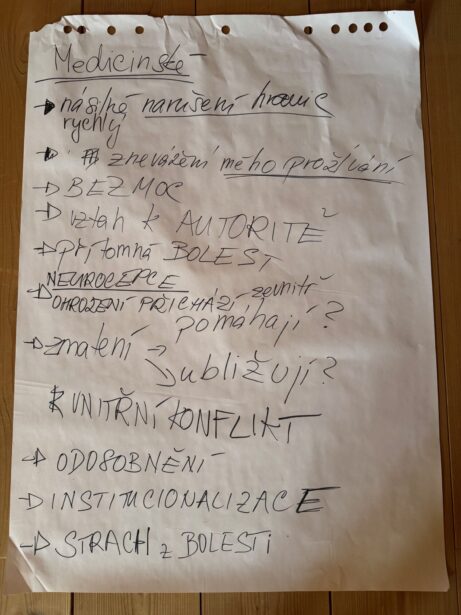 Medicinské
→ násilné narušení hranic
rychlý
→ znevážení mého prožívání
→ BEZMOC
→ vztah k AUTORITĚ
→ přítomná BOLEST
NEUROCEPCE
→ OHROŽENÍ PŘICHÁZÍ zevnitř
pomáhají?
→ zmatení →
ubližují?
VNITŘNÍ KONFLIKT
→ ODOSOBNĚNÍ
→ INSTITUCIONALIZACE
→ STRACH z BOLESTI